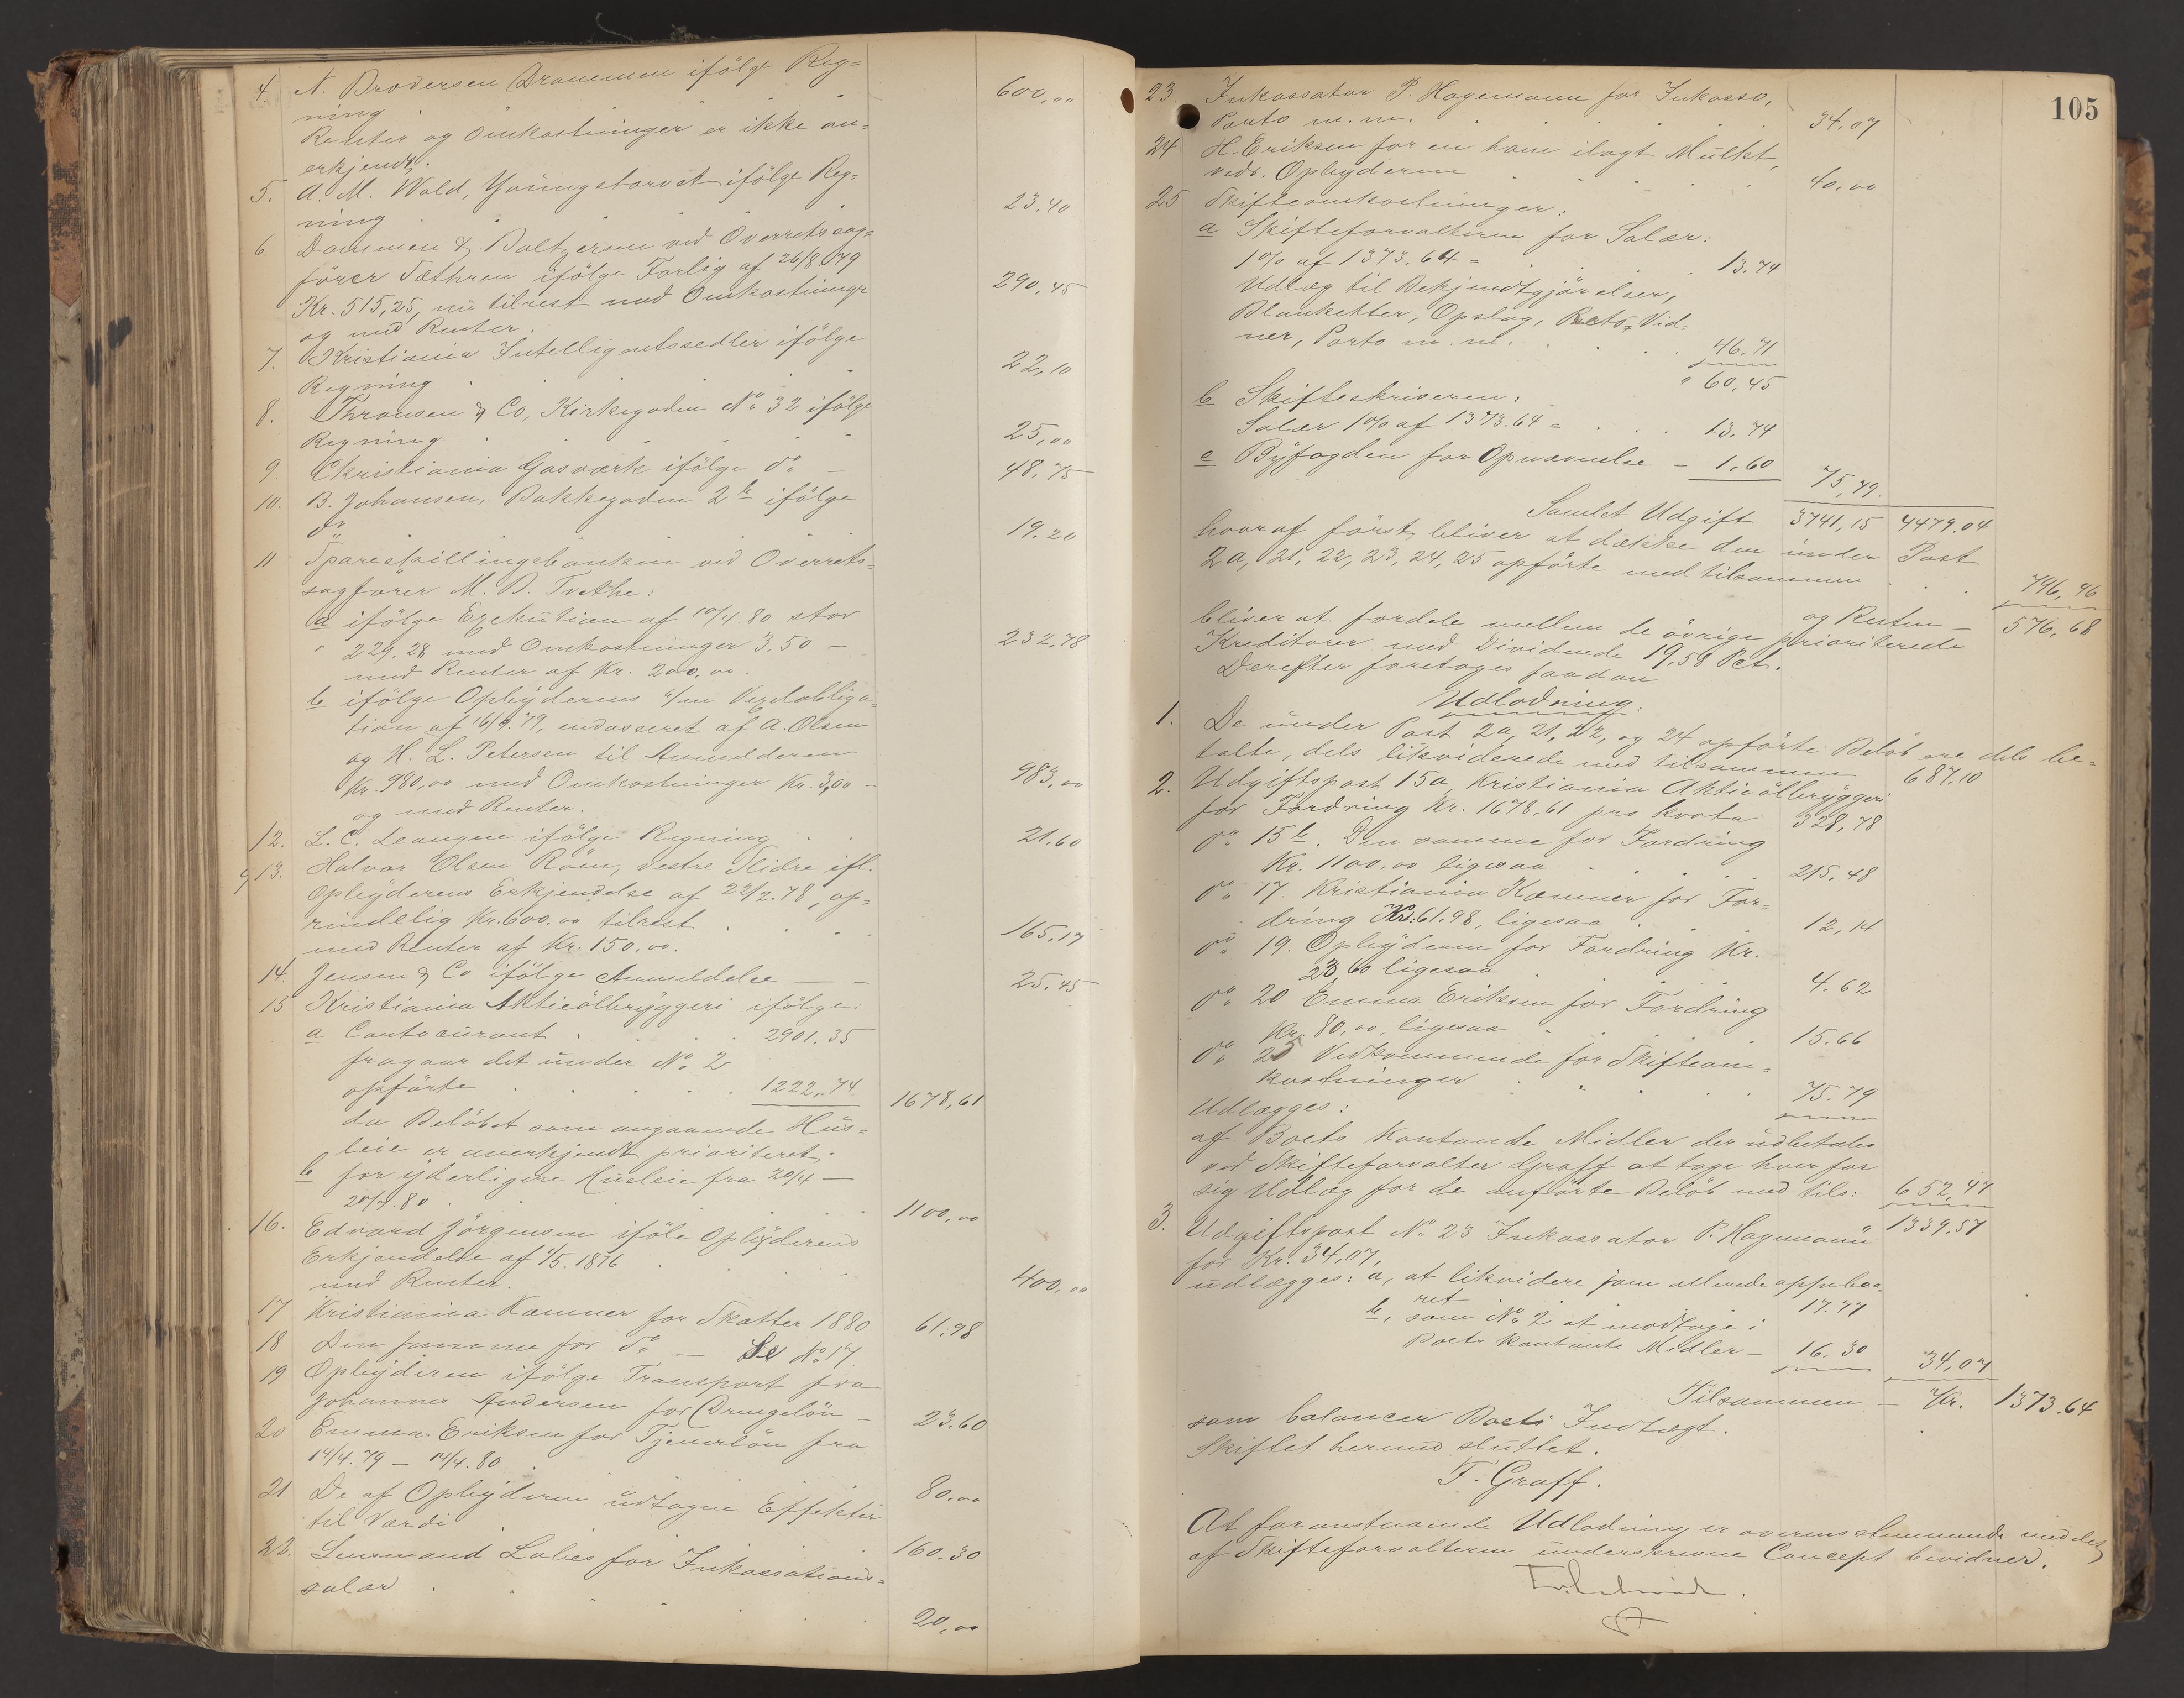 4. N. Brodersen Drammen ifölge Reg=
ning . . . 600,00
Renter og Omkostninger er ikke an=
erkjendt.
5. A. M. Wold, Youngstorvet ifölge Reg=
ning . . . 23.40
6. Dammen & Baltzersen ved Overretssag=
förer Sæthren ifölge Forlig af 26/8 79
Kr. 515,25, nu tilrest med Omkostninger 290,45
og med Renter.
7. Kristiania Intelligentssedler ifölge
Regning . . . 22,10
8. Thransen & Co, Kirkegaden No 32 ifölge
Regning . . . 25,00
9 Christiania Gasværk ifölge do — 48.75
10. B. Johansen, Bakkegaden 2 b ifölge
do . . . 19.20
11 Spareskillingsbanken ved Overrets=
sagförer M. B. Tvethe:
a ifölge Exekution af 10/4.80 stor
" 229.28 med Omkostninger 3.50 — 232.78
med Renter af Kr. 200,00.
b ifölge Opbyderens o/m Vexelobliga=
tion af 16/9.79, endosseret af A. Olsen
og H. L. Petersen til Anmelderen
Kr. 980,00 med Omkostninger Kr. 3,00 — 983,00
og med Renter.
12. L. C. Leangen ifölge Regning . . 21.60
13. Halvor Olsen Röen, vestre Slidre ifl.
Opbyderens Erkjendelse af 22/2.78, op=
rindelig Kr. 600.00 tilrest . . . 165,17
med Renter af Kr. 150.00.
14. Jensen & Co ifölge Anmeldelse — — 25.45
15 Kristiania Aktieölbryggeri ifölge:
a Contocurant . . . 2901.35
fragaar det under No 2
opförte . . . 1222.74 1678,61
da Belöbet som angaaende Hus=
leie er anerkjendt prioriteret.
b for yderligere Husleie fra 20/4 —
20/7.80 . . . 1100,00
16. Edvard Jörgensen iföle Opbyderens
Erkjendelse af 1/5.1876 . . . 400,00
med Renter.
17 Kristiania Kæmner for Skatter 1880 61,98
18 Den samme for do — Se No 17
19 Opbyderen ifölge Transport fra
Johannes Andersen for Drengelön — 23.60
20 Emma Eriksen for Tjenerlön fra
14/4.79 — 14/4.80 . . . 80,00
21 De af Opbyderen udtagne Effekter
til Værdi . . . 160.30
22. Lensmand Lobes for Inkassations=
salær . . . 20,00
105
23. Inkassator P. Hagemann for Inkasso,
Porto m.m. . . . 34.07
24 H. Eriksen for en ham ilagt Mulkt,
vedr. Opbyderen . . . 40,00
25 Skifteomkostninger:
a Skifteforvalteren for Salær:
1% af 1373.64 = . . 13.74
Udlæg til Bekjendtgjörelser,
Blanketter, Opslag, Rets-Vid=
ner, Porto m.m. . . . 46.71
" 60,45
b Skifteskriveren,
Salær 1% af 1373.64 = . . . 13.74
c Byfogden for Opnævnelse — 1,60 75,79
Samlet Udgift 3741,15 4479.04
hvoraf först bliver at dække den under Post
2a, 21, 22, 23, 24, 25 opförte med tilsammen . . 796,96
og Resten — 576,68
bliver at fordele mellem de övrige prioriterede
Kreditorer med Dividende 19,58 Pct.
Derefter foretages saadan
Udlodning:
1. De under Post 2a, 21, 22, og 24 opförte Belöb ere dels be=
talte, dels likviderede med tilsammen 687,10
2. Udgiftspost 15a, Kristiania Aktieölbryggeri
for Fordring Kr. 1678,61 pro kvota 328,78
do 15 b. Den samme for Fordring
Kr. 1100,00 ligesaa . . . 215,48
do 17. Kristiania Kæmner for For=
dring Kr. 61.98, ligesaa . . . 12,14
do 19. Opbyderen for Fordring Kr.
23,60 ligesaa . . . 4.62
do 20 Emma Eriksen for Fordring
Kr. 80,00, ligesaa . . . 15.66
do 25 Vedkommende for Skifteom=
kostninger . . . 75.79
Udlægges:
af Boets Kontante Midler der udbetales
ved Skifteforvalter Graff at tage hver for
sig Udlæg for de anförte Belöb med tils: 652,47
1339.57
3. Udgiftspost No 23 Inkassator P. Hagemann
for Kr. 34,07,
udlægges: a, at likvidere som allerede oppebaa=
ret 17.77
b, som No 2 at modtage i
Boets kontante Midler — 16.30 34,07
Tilsammen — Kr. 1373.64
som balancer Boets Indtægt.
Skiftet hermed sluttet.
F. Graff.
At foranstaaende Udlodning er overensstemmende med det
af Skifteforvalteren underskrevne Concept bevidner.